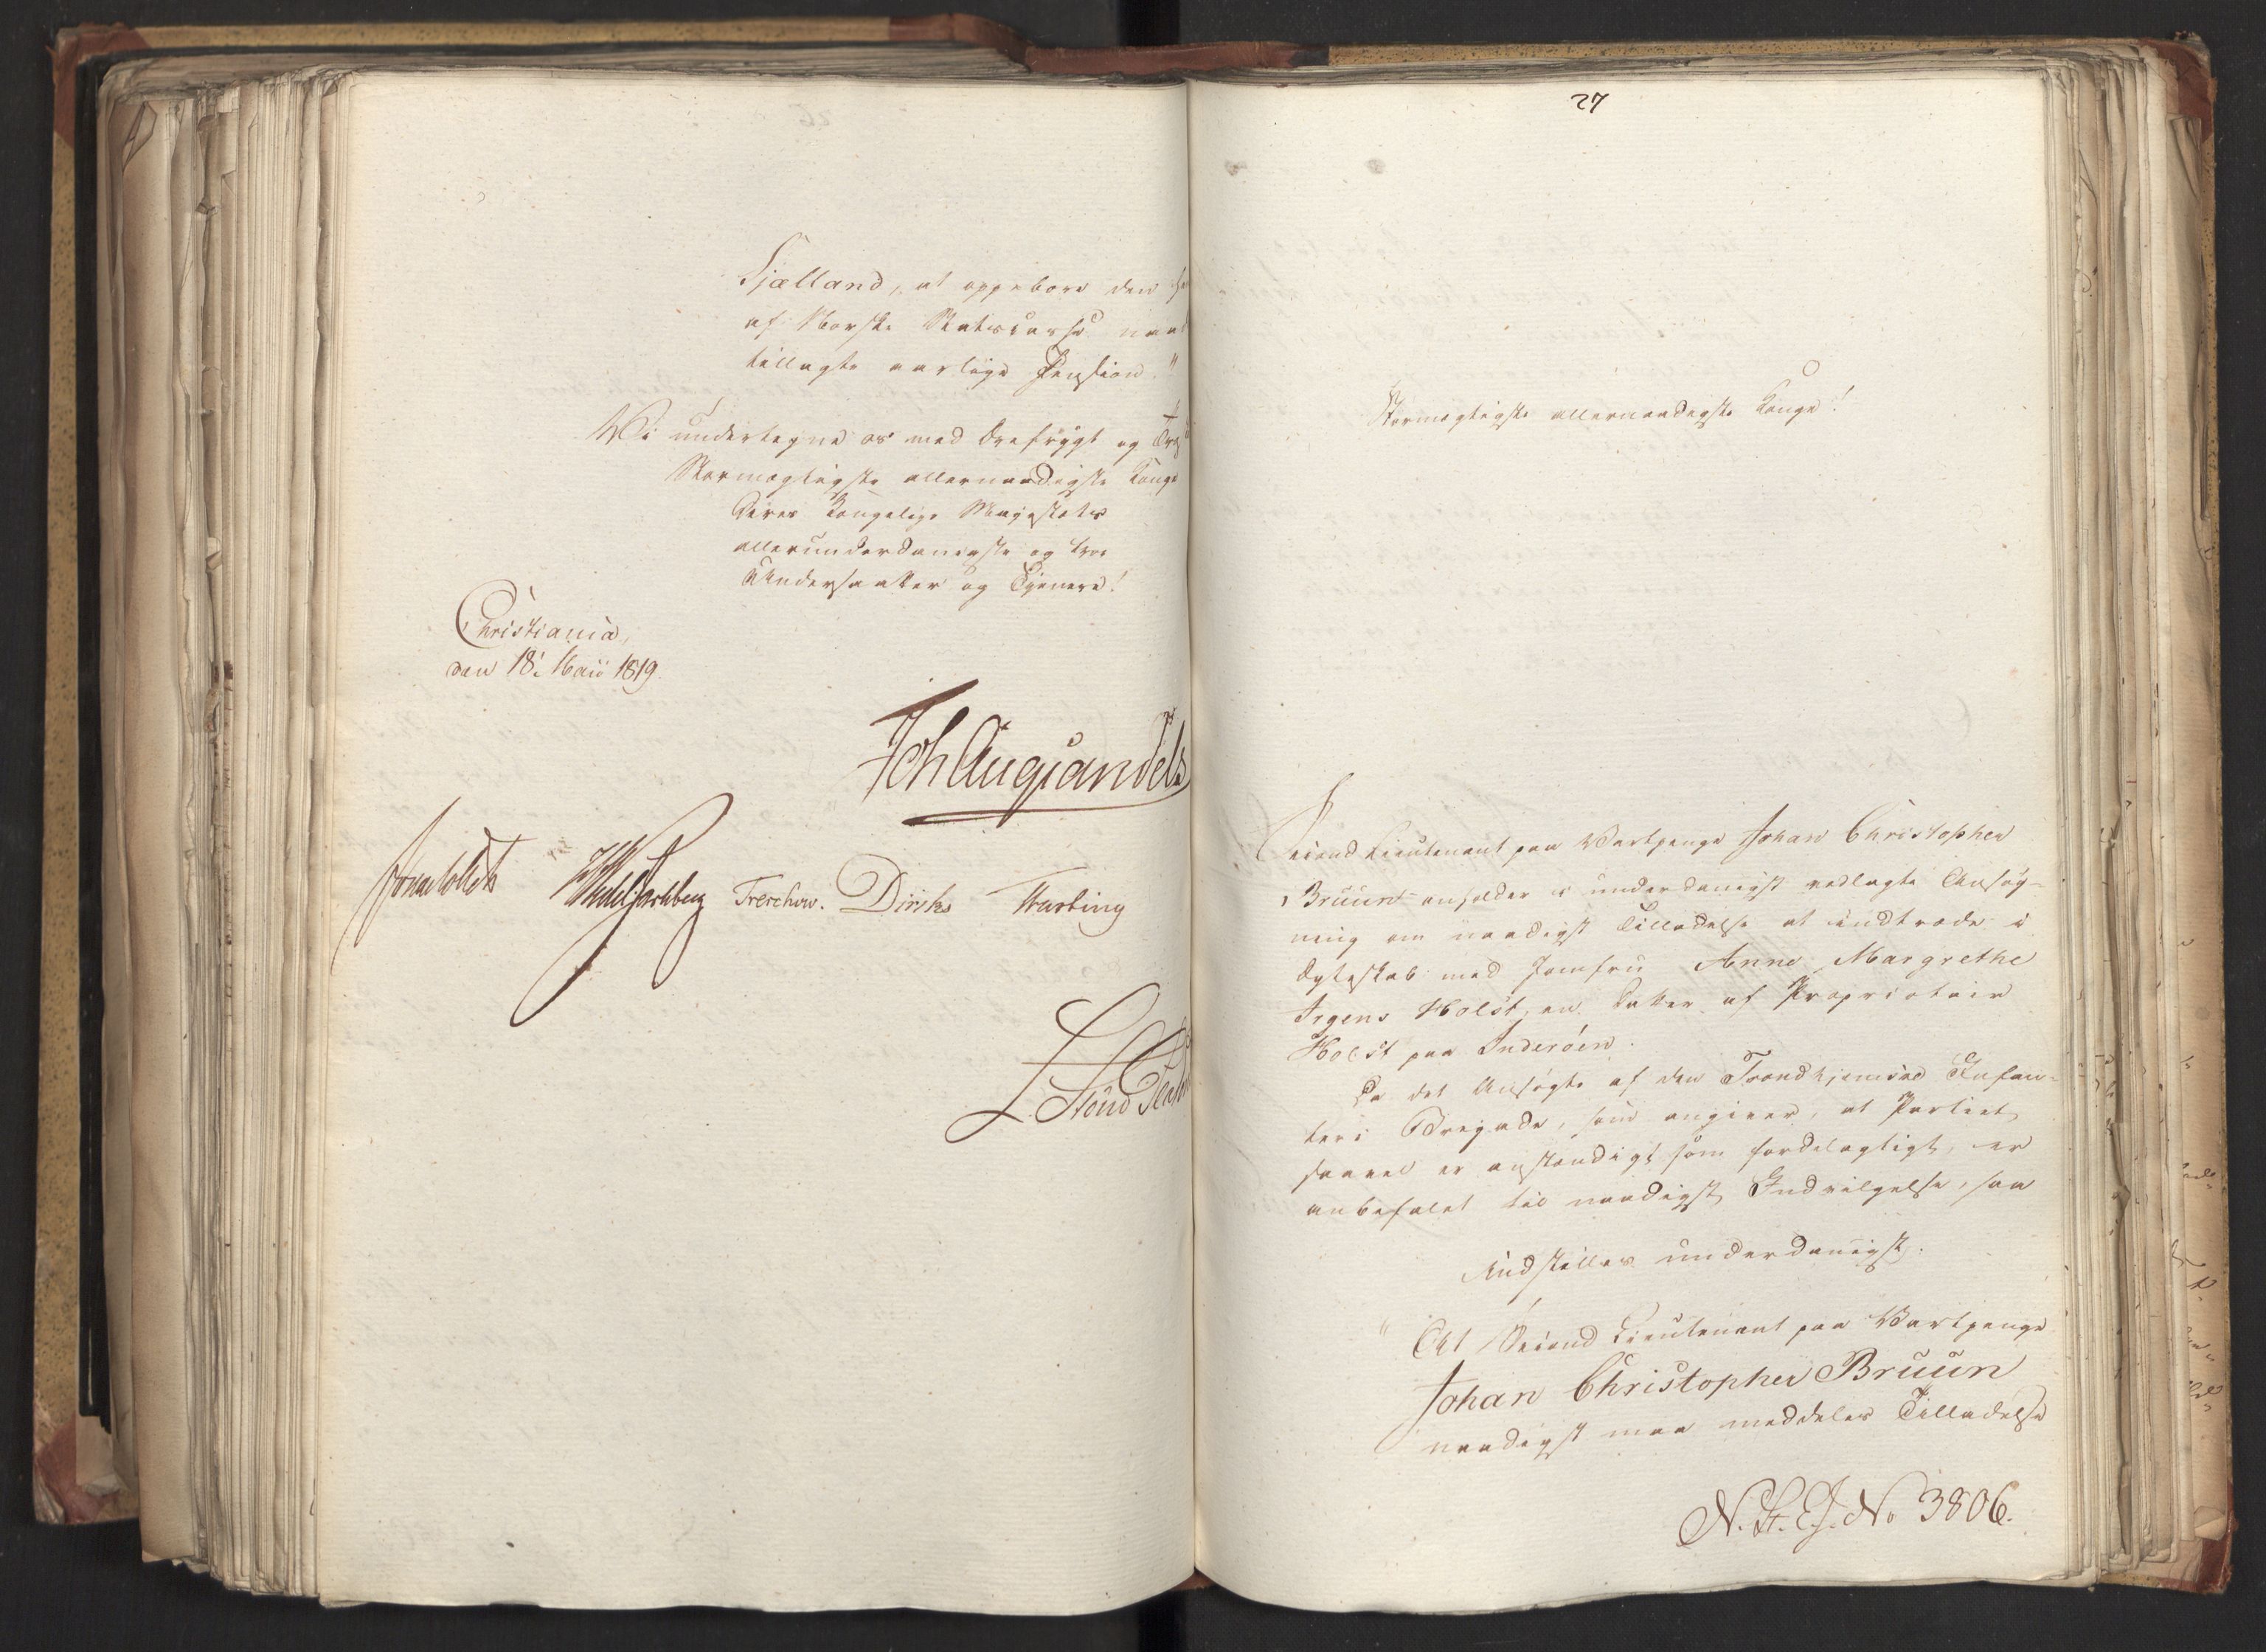 Sjælland, at oppebære den
af Norske Statscasse
tillagte aarlige Pension."
Vi undertegne os med Ærefrygt og
Stormægtigste allernaadigste Konge
Deres Kongelige Majestæts
allerunderdanigste og troe
Undersaatter og Tjenere!
Christiania,
den 18: Maii 1819.
Joh Aug Sandels
Sommerhielm Wedel Jarlsberg Treschow. Diriks Fasting
L. Stoud Platou
27
Stormægtigste allernaadigste Konge!
Second Lieutenant paa Vartpenge Johan Christopher
Bruun anholder i underdanigst vedlagte Ansøg-
ning om naadigst Tilladelse at indtræde i
Ægteskab med Jomfru Anne Margrethe
Irgens Holst, en Datter af Proprietair
Holst paa Inderøen.
Da det Ansøgte af den Trondhjemske Infan-
teri Brigade, som angiver, at Partiet
saavel er anstændigt som fordelagtigt, er
anbefalet til naadigst Indvilgelse, saa
indstilles underdanigst:
"At Second Lieutenant paa Vartpenge
Johan Christopher Bruun
naadigst maa meddeles Tilladelse
N. St. E. J. No 3806.